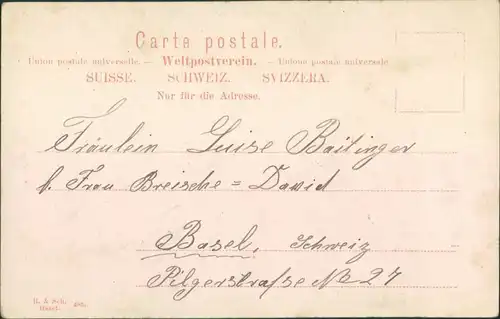 Carte postale.
Union postale universelle. — Weltpostverein. — Unione postale universale
SUISSE. SCHWEIZ. SVIZZERA.
Nur für die Adresse.
Fräulein Luise Baitinger
b. Frau Breische = David
Basel, Schweiz
Pilgerstraße No 27
H. & Sch.
Basel.